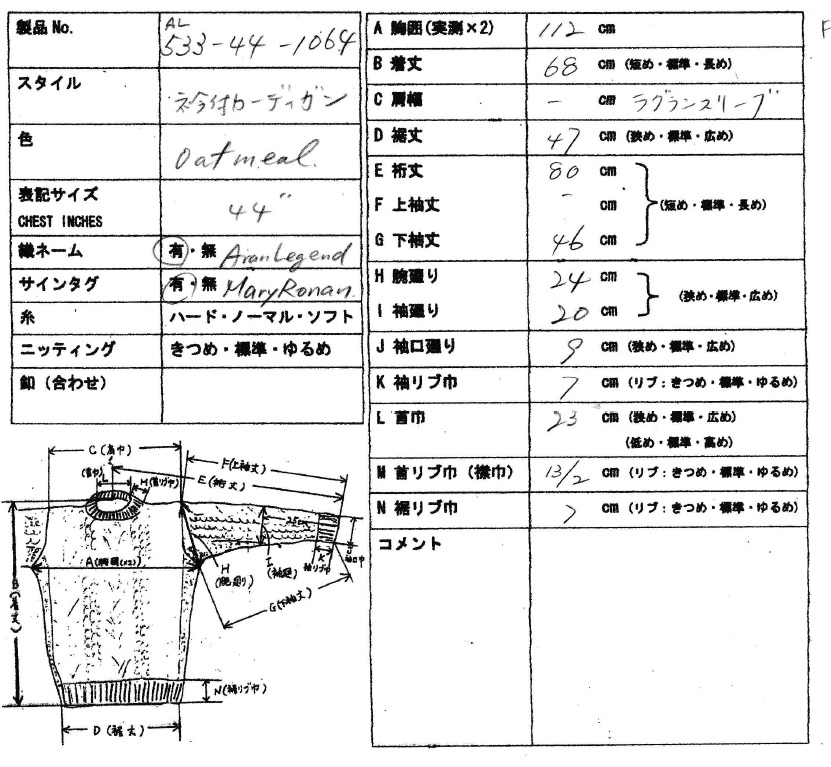 製品 No.
AL
533-44-1064
スタイル
衿付カーディガン
色
Oatmeal.
表記サイズ
CHEST INCHES
44"
織ネーム
有・無 Aran Legend
サインタグ
有・無 Mary Ronan.
糸
ハード・ノーマル・ソフト
ニッティング
きつめ・標準・ゆるめ
釦（合わせ）
A 胸囲(実測×2)
112 cm
B 着丈
68 cm (短め・標準・長め)
C 肩幅
- cm ラグランスリーブ
D 裾丈
47 cm (狭め・標準・広め)
E 裄丈
80 cm
F 上袖丈
- cm
(短め・標準・長め)
G 下袖丈
46 cm
H 腕廻り
24 cm
(狭め・標準・広め)
I 袖廻り
20 cm
J 袖口廻り
9 cm (狭め・標準・広め)
K 袖リブ巾
7 cm (リブ：きつめ・標準・ゆるめ)
L 首巾
23 cm (狭め・標準・広め)
(低め・標準・高め)
M 首リブ巾（襟巾）
13/2 cm (リブ：きつめ・標準・ゆるめ)
N 裾リブ巾
7 cm (リブ：きつめ・標準・ゆるめ)
コメント
F
C(肩巾)
(首巾)
L
M(首リブ巾)
F(上袖丈)
E(裄丈)
A(胸囲(x2))
B(着丈)
H
(腕廻り)
I
(袖廻)
K
袖リブ巾
J
袖口巾
G(下袖丈)
N(裾リブ巾)
D(裾丈)